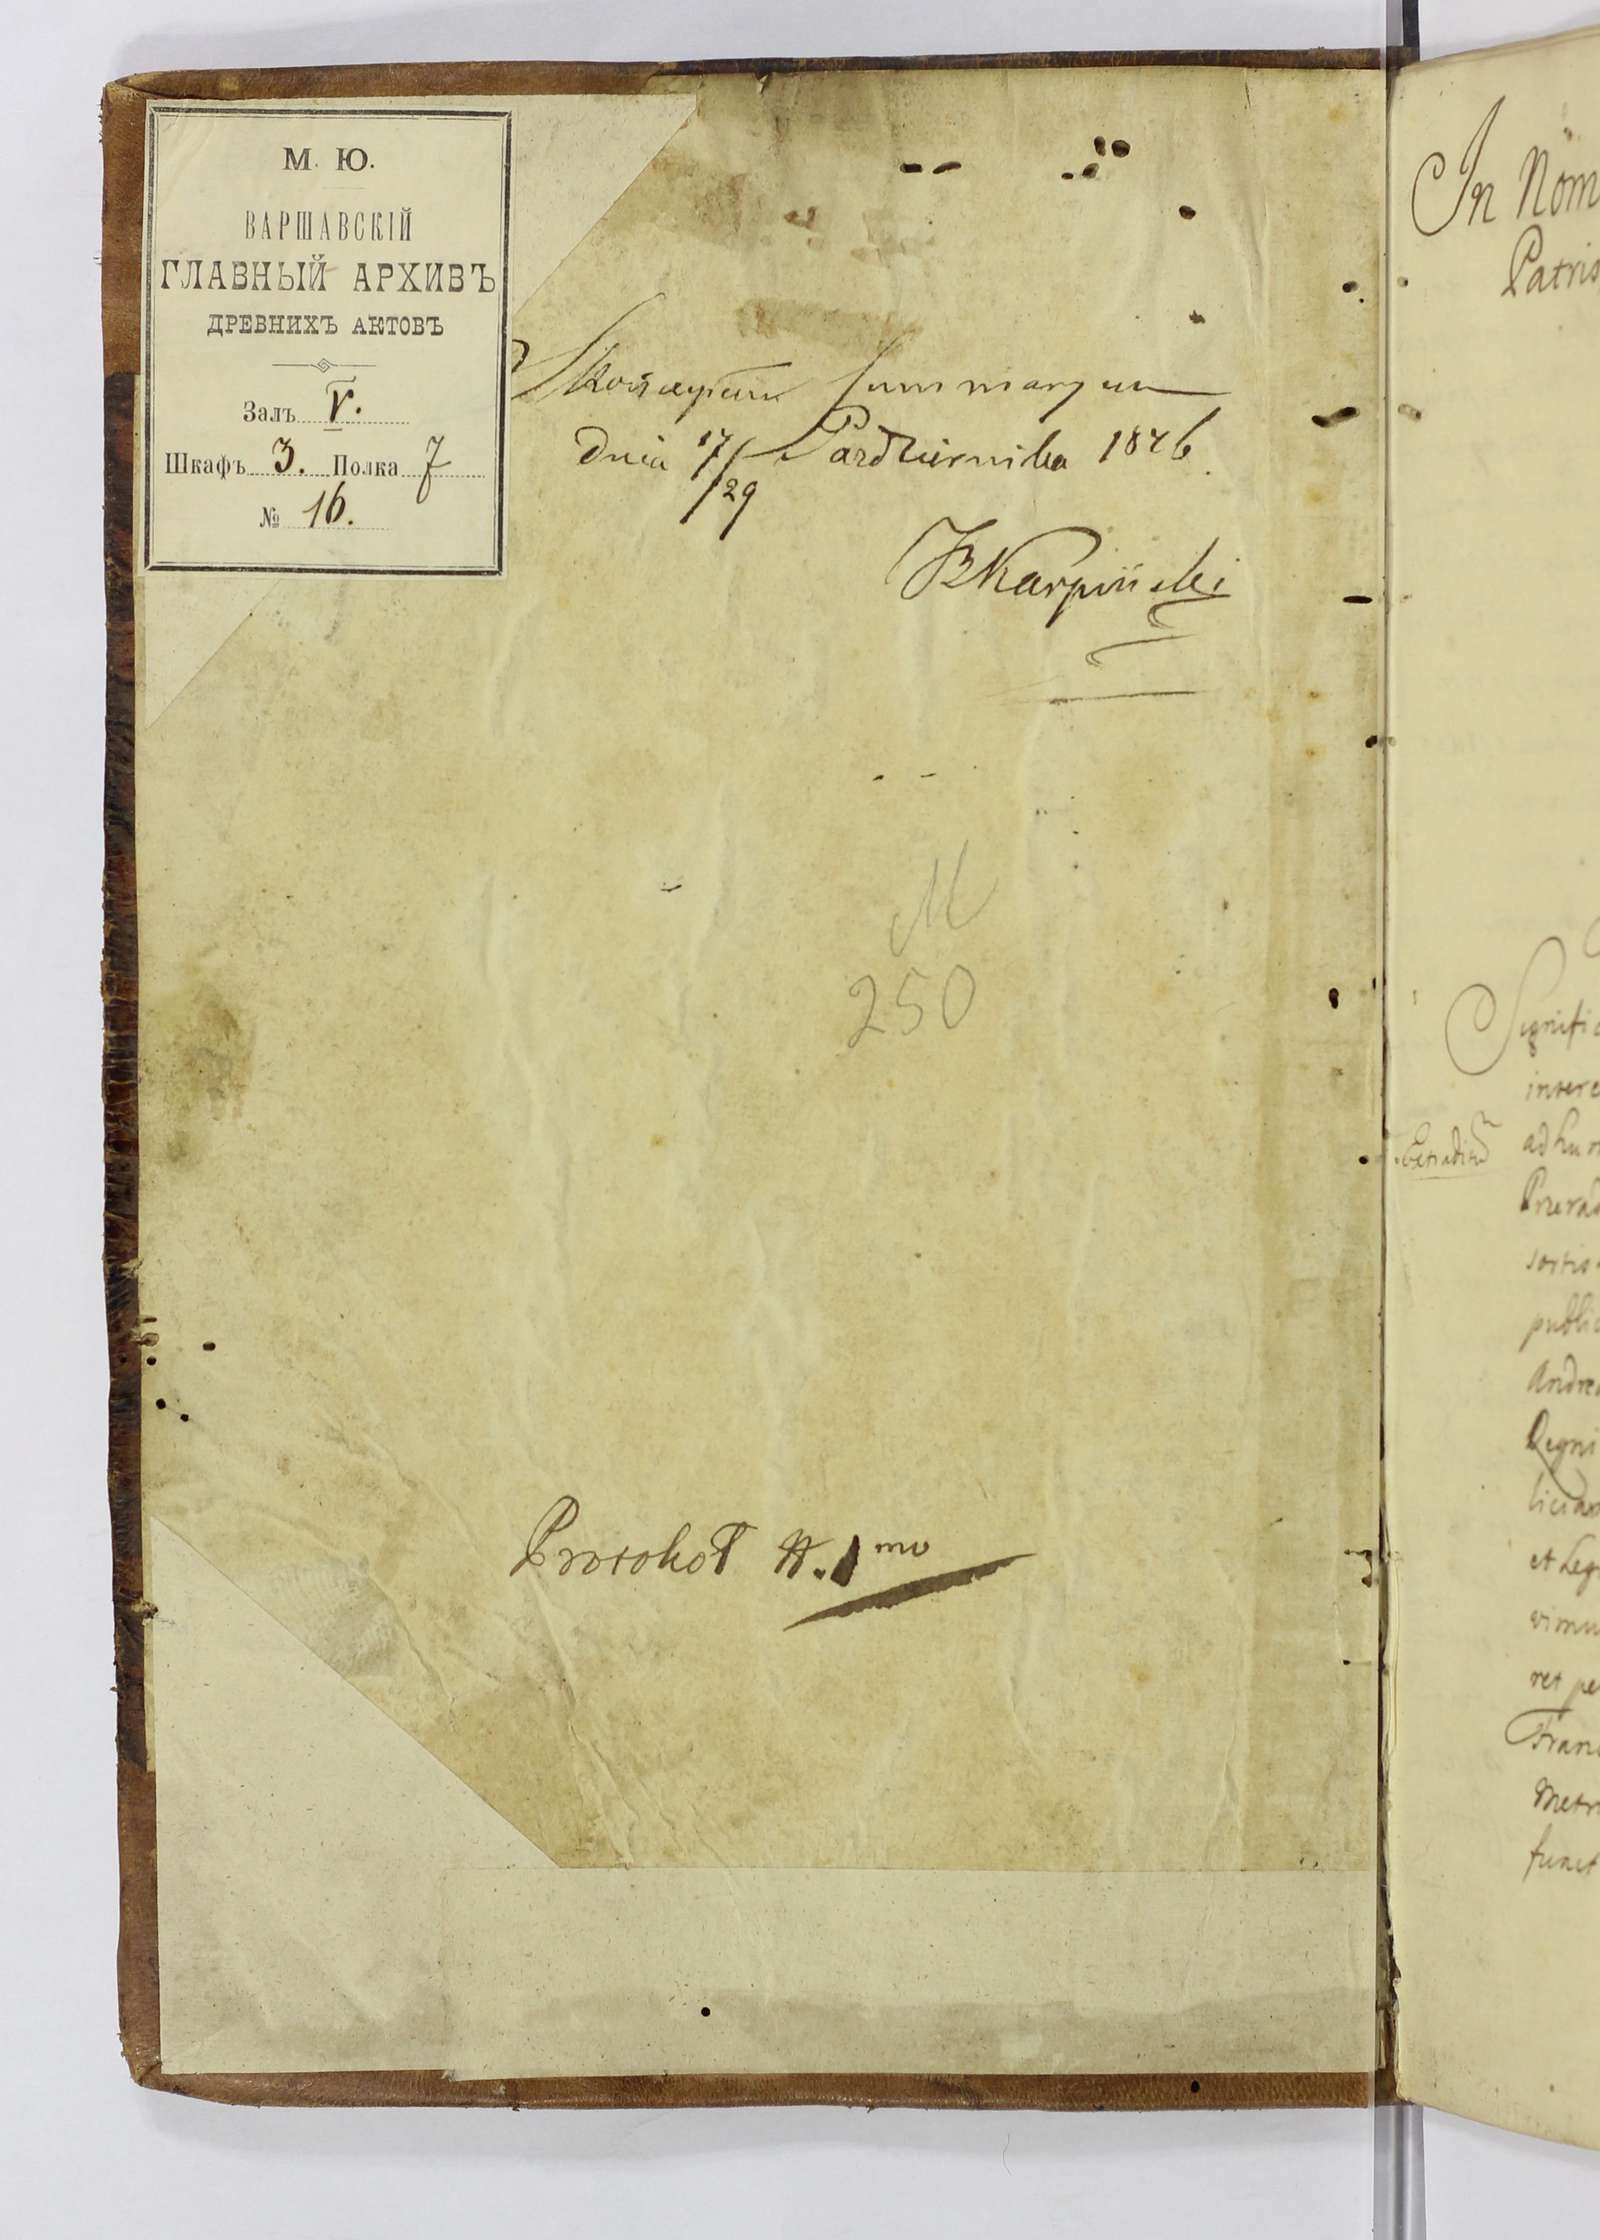 М. Ю.
ВАРШАВСКІЙ
ГЛАВНЫЙ АРХИВЪ
ДРЕВНИХЪ АКТОВЪ
Залъ V.
Шкафъ 3. Полка 7
№ 16.
Skończyłem Summaryusz
dnia 17/29 Października 1846
JBKarpiński
M
250
Protokoł N. 1mo
In Nom
Patris
Signific
interc
Extraditum
ad hun
sortis
public
Andrea
Regni
et Leg
vimu
ret pe
Franc
Metri
funct